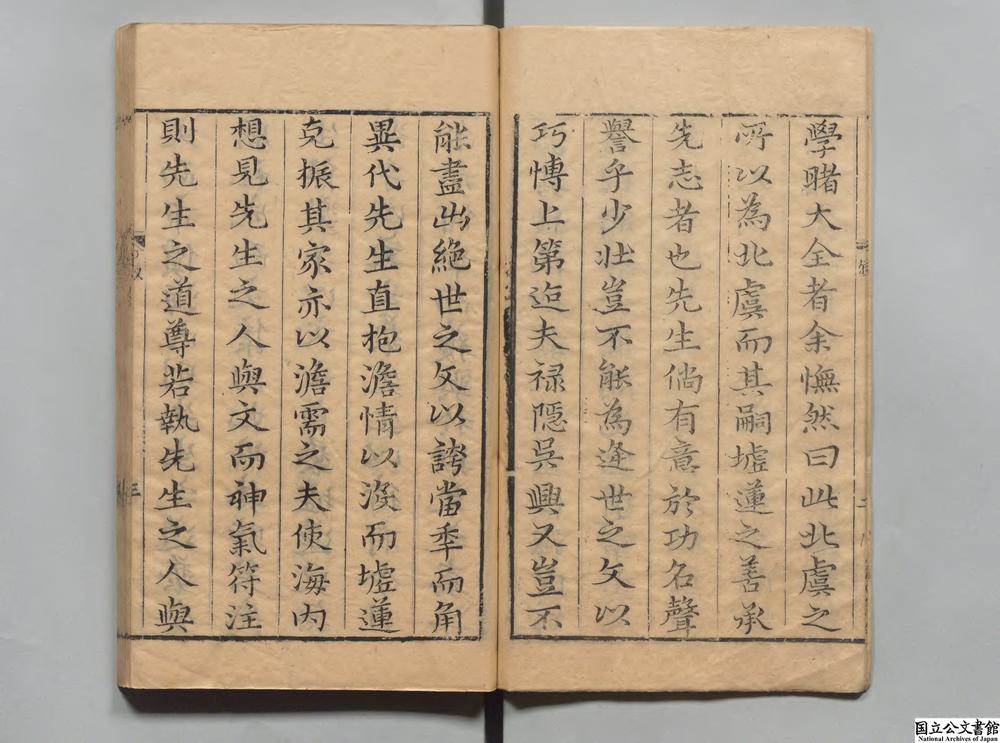 學睹大全者余憮然曰此北虞之
所以為北虞而其嗣墟蓮之善承
先志者也先生倘有意於功名聲
譽乎少壯豈不能為逢世之文以
巧慱上第迨夫祿隱吳興又豈不
能盡出絕世之文以誇當季而角
異代先生直抱澹情以沒而墟蓮
克振其家亦以澹需之夫使海內
想見先生之人與文而神氣符注
則先生之道尊若執先生之人與
三
国立公文書館
National Archives of Japan